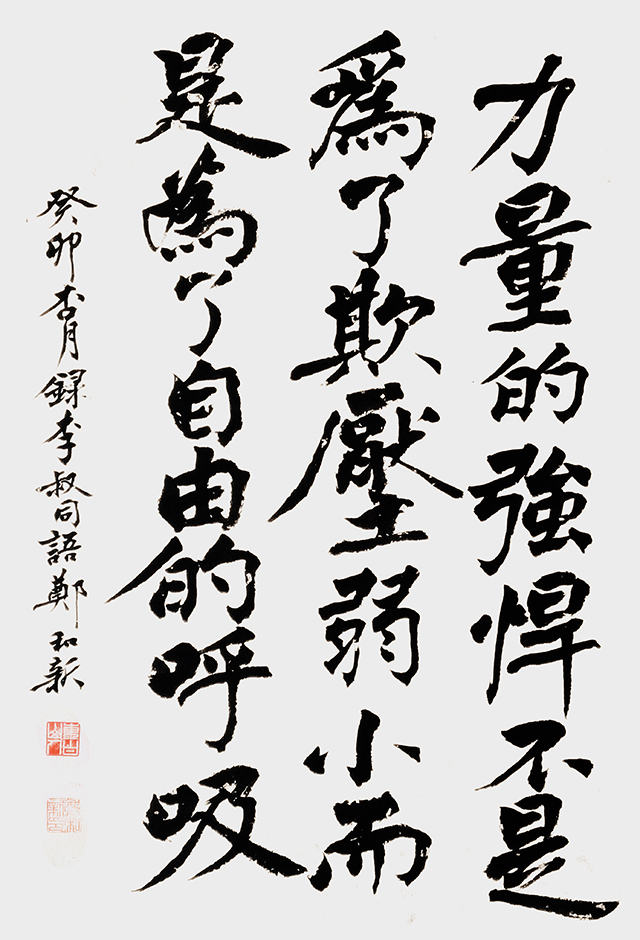 力量的強悍不是
爲了欺壓弱小而
是爲了自由的呼吸
癸卯杏月錄李叔同語鄭和新